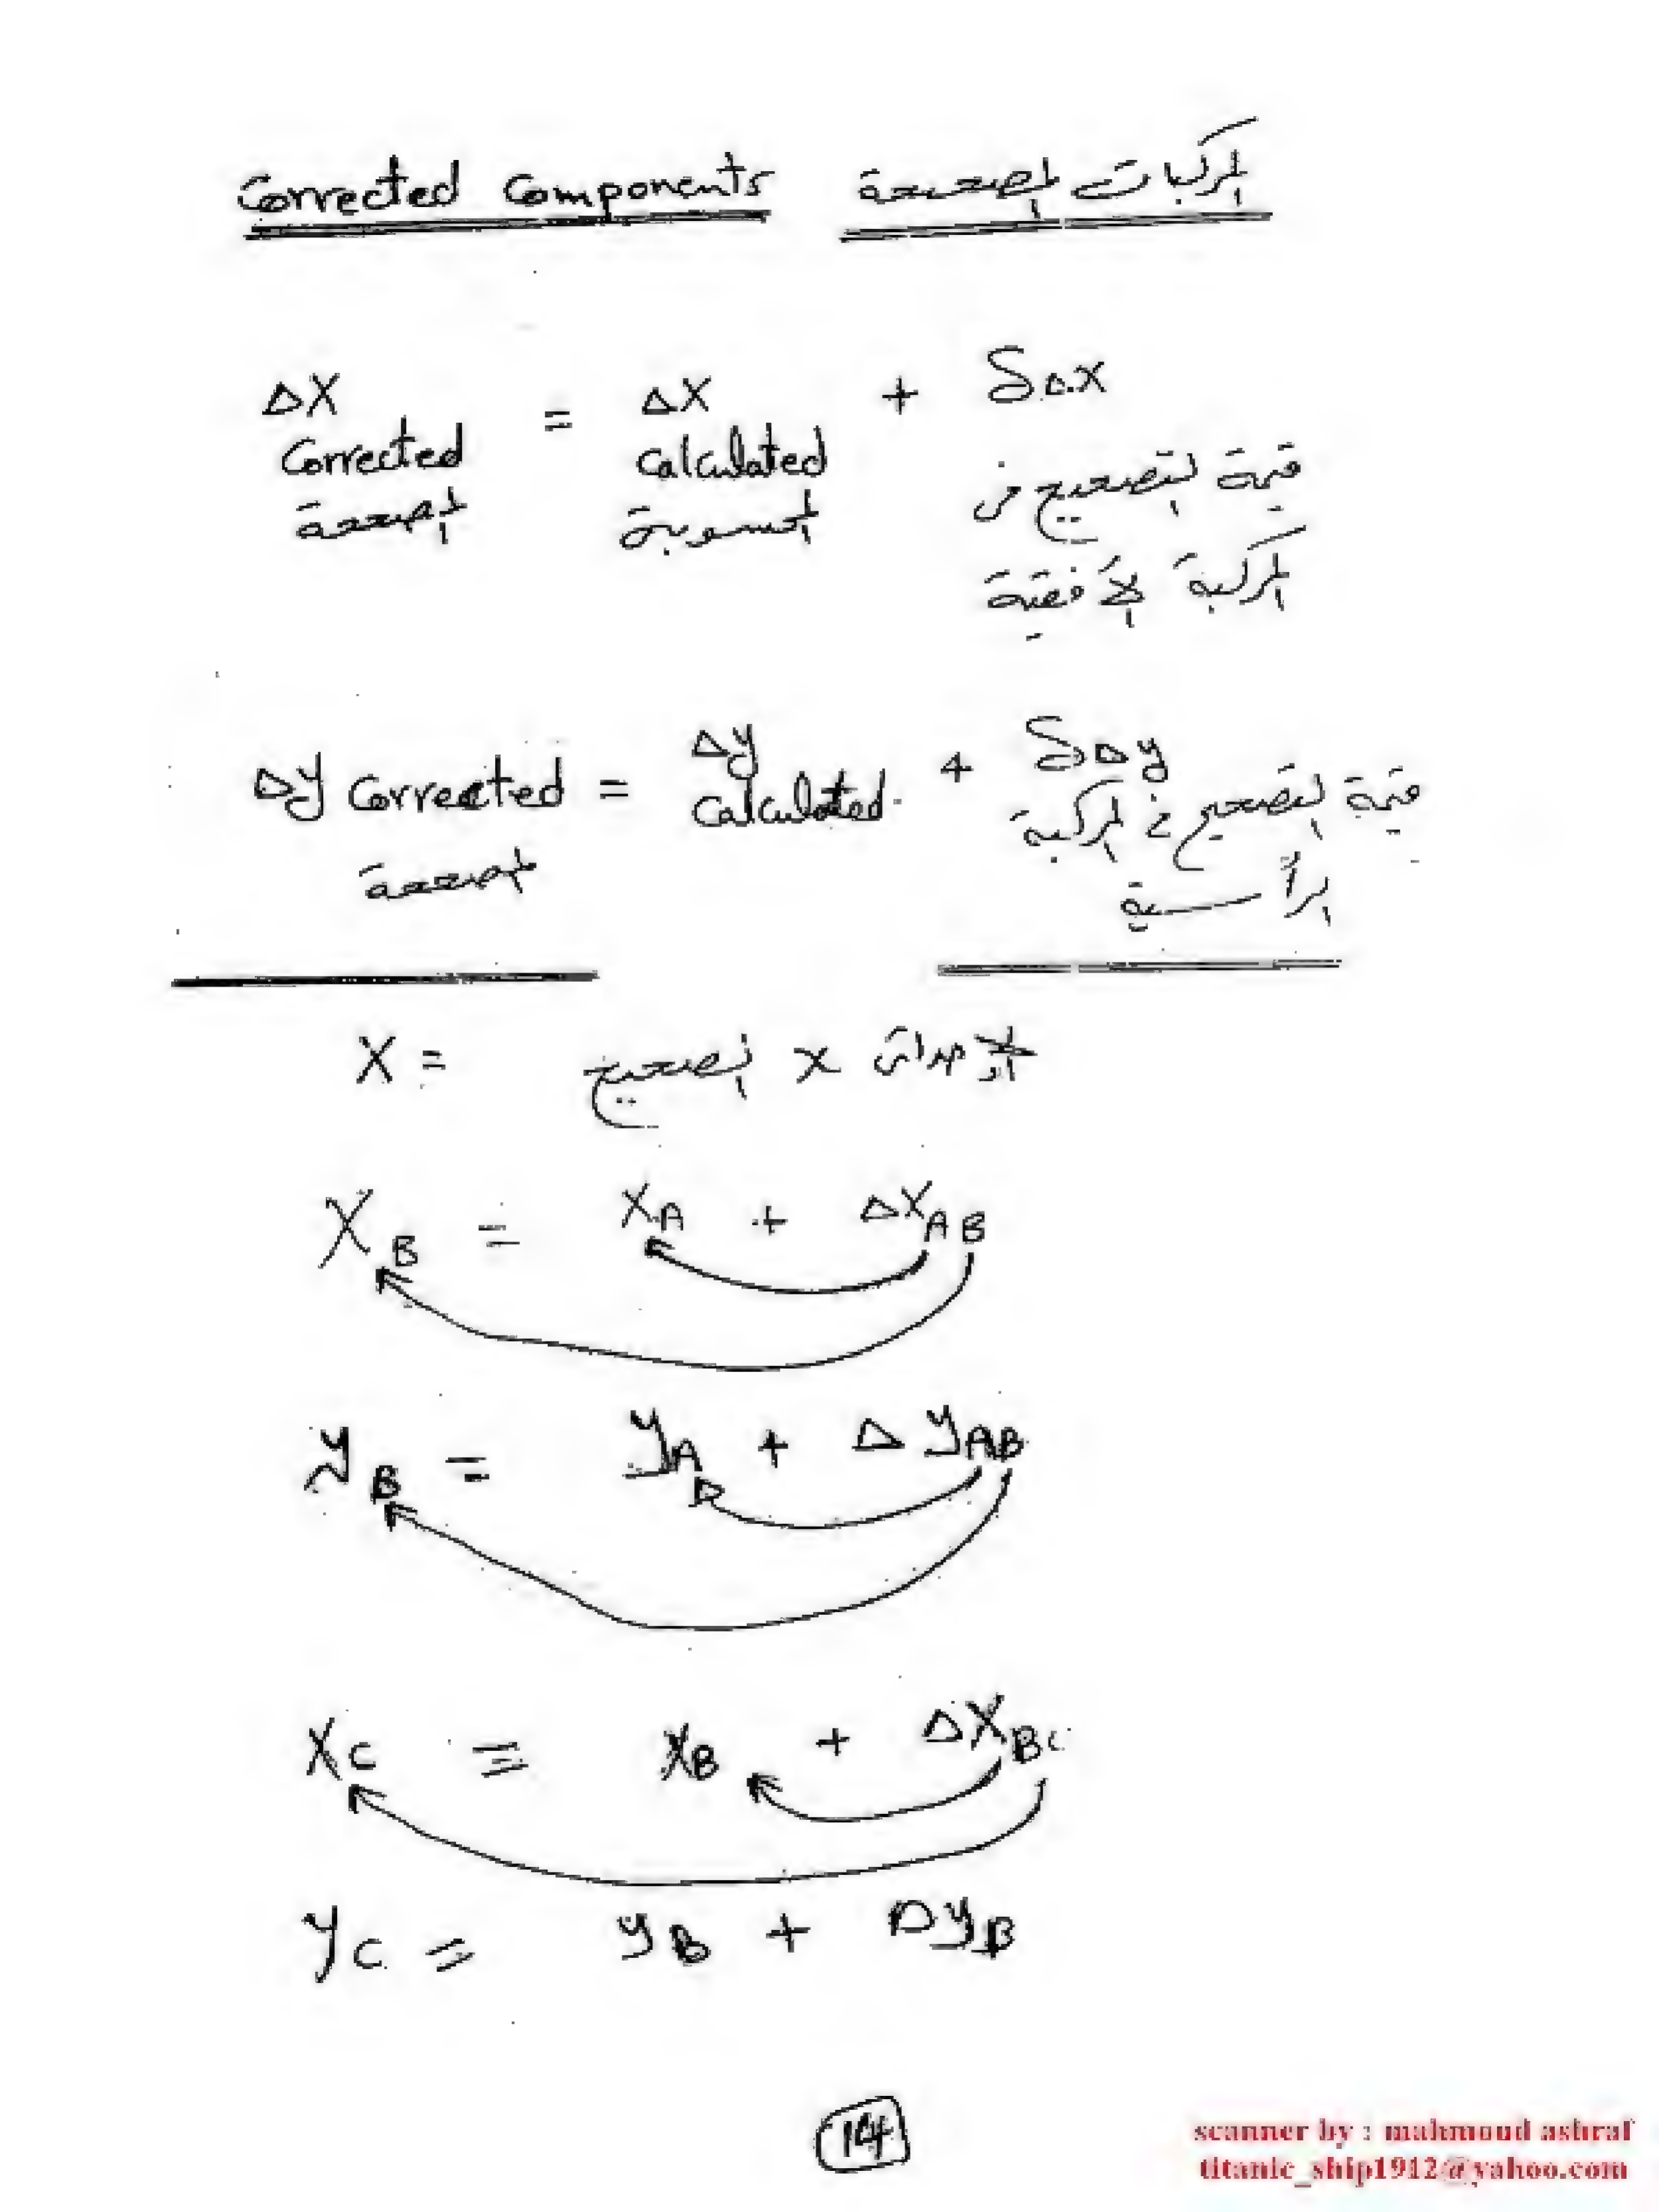 Corrected Components المركبات المصححة
ΔX = ΔX + δΔX
Corrected Calculated
المصححة المحسوبة قيمة التصحيح في
المركبة الأفقية
Δy Corrected = Δy Calculated + δΔy
المصححة قيمة التصحيح في المركبة
الرأسية
X = الاحداثى X الصحيح
X_B = X_A + ΔX_AB
y_B = y_A + Δy_AB
X_C = X_B + ΔX_BC
y_C = y_B + Δy_B
14
scanner by : mahmoud ashraf
titanic_ship1912@yahoo.com